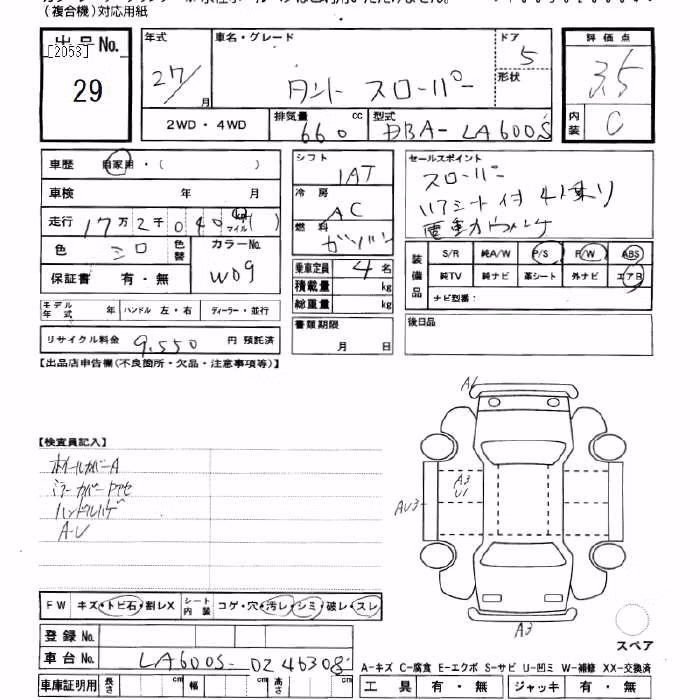 (複合機)対応用紙
出品No.
[2053]
29
年式
27/
月
車名・グレード
タント スローパー
ドア
5
形状
評価点
3.5
内装
C
2WD・4WD
排気量
660
cc
型式
DBA-LA600S
車歴 自家用・( )
車検 年 月
走行 17万2千040 km マイル ( )
色 シロ 色替 カラーNo. W09
保証書 有・無
モデル年式 年 ハンドル 左・右 ディーラー・並行
リサイクル料金 9,550 円 預託済
シフト
IAT
冷房
AC
燃料
ガソリン
乗車定員 4 名
積載量 kg
総重量 kg
書類期限
月 日
セールスポイント
スローパー
リアシート付 4人乗り
装備品
S/R 純A/W P/S P/W ABS
純TV 純ナビ 革シート 外ナビ エアB
ナビ型番:
後日品
【出品店申告欄(不良箇所・欠品・注意事項等)】
【検査員記入】
ホイールカバーA
ハンドルハゲ
A・U
A3
U1
A3
FW キズ・トビ石・割レX シート内装 コゲ・穴・汚レ・シミ・破レ・スレ
登録No.
車台No. LA600S-0246308
車庫証明用 長さ cm 幅 cm 高さ cm
スペア
A-キズ C-腐食 E-エクボ S-サビ U-凹ミ W-補修 XX-交換済
工具 有・無 ジャッキ 有・無